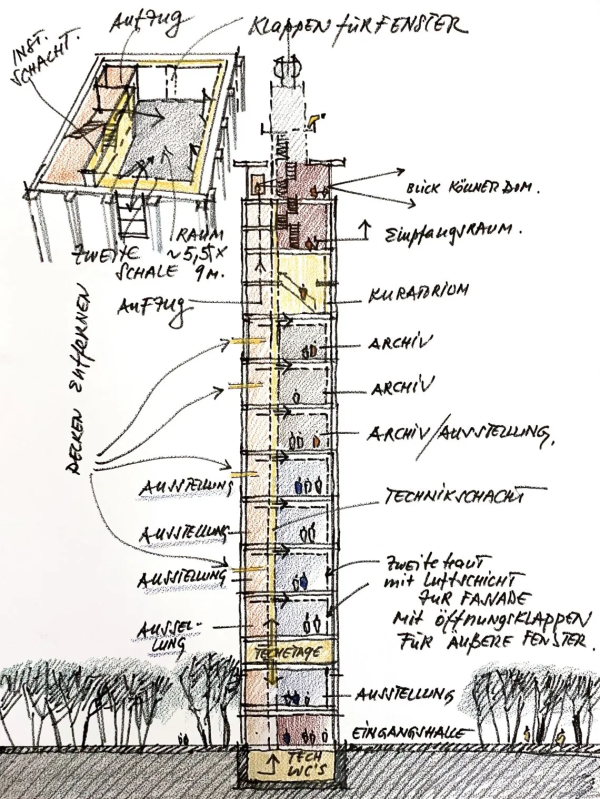 AUFZUG
KLAPPEN FÜR FENSTER
INST.
SCHACHT.
ZWEITE
SCHALE
RAUM
~5,5X
9M.
BLICK KÖLLNER DOM.
EMPFANGSRAUM.
AUFZUG
KURATORIUM
DECKEN ENTFERNEN
ARCHIV
ARCHIV
ARCHIV/AUSSTELLUNG,
AUSSTELLUNG
TECHNIKSCHACHT
AUSSTELLUNG
AUSSTELLUNG
ZWEITE HAUT
MIT LUFTSCHICHT
ZUR FASSADE
MIT ÖFFNUNGSKLAPPEN
FÜR ÄUßERE FENSTER.
AUSSEL-
LUNG
TECHETAGE
AUSSTELLUNG
EINGANGSHALLE
TECH
WC'S